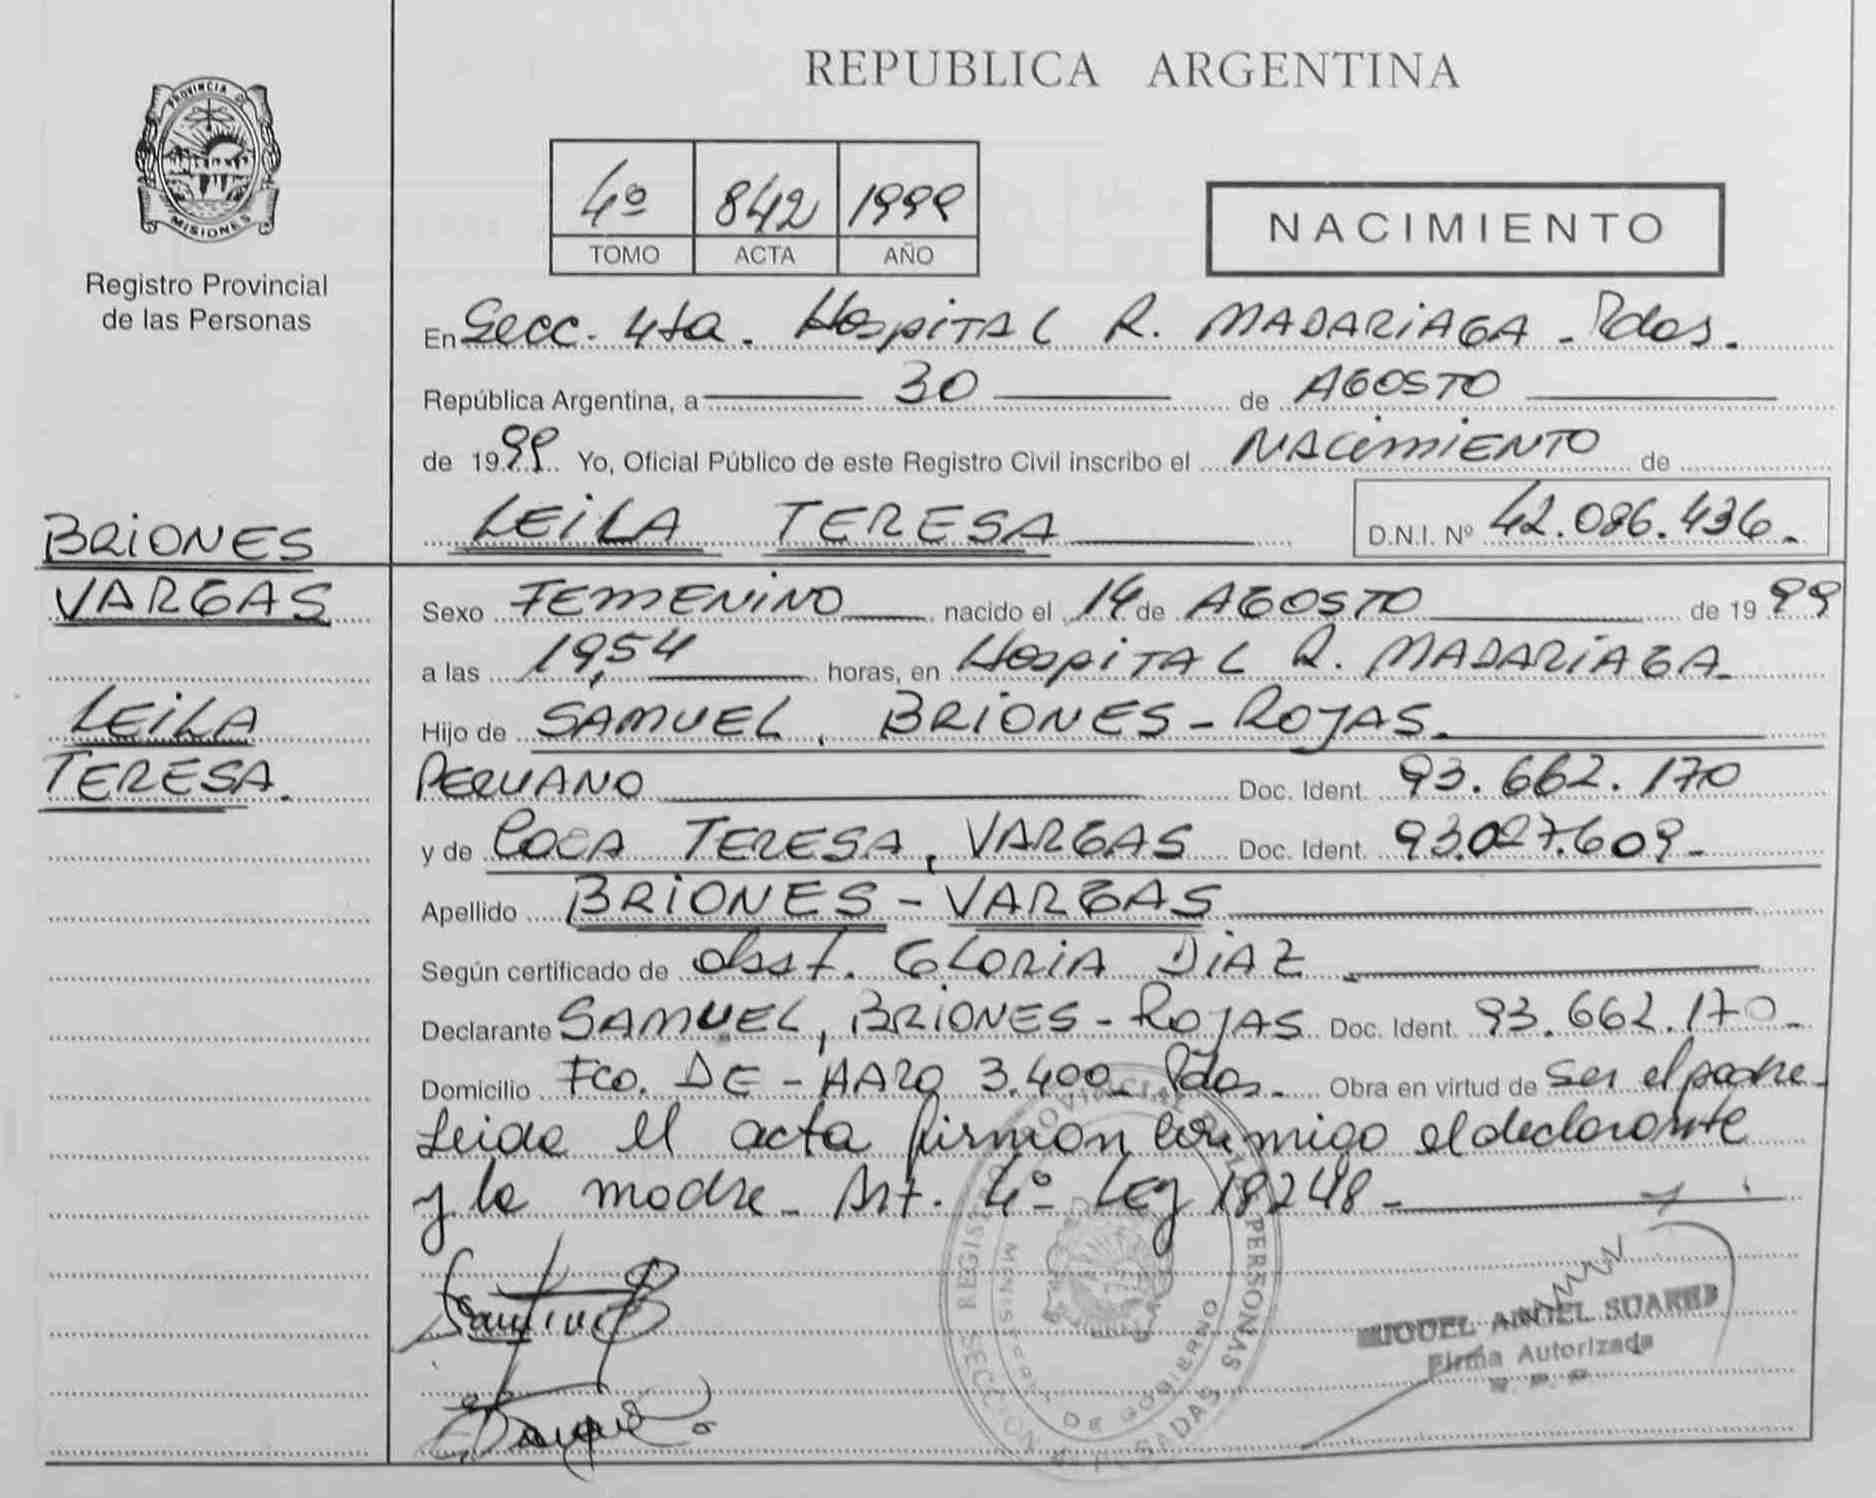 REPUBLICA ARGENTINA
PROVINCIA DE
MISIONES
Registro Provincial
de las Personas
4º 842 1999
TOMO ACTA AÑO
NACIMIENTO
En Secc. 4ta. HOSPITAL R. MADARIAGA - Pdas.
República Argentina, a 30 de AGOSTO
de 1999 Yo, Oficial Público de este Registro Civil inscribo el NACIMIENTO de
LEILA TERESA D.N.I. Nº 42.086.436.-
BRIONES
VARGAS
LEILA
TERESA.
Sexo FEMENINO nacido el 14 de AGOSTO de 1999
a las 19,54 horas, en HOSPITAL R. MADARIAGA.-
Hijo de SAMUEL, BRIONES - ROJAS.
PERUANO Doc. Ident. 93.662.170
y de TERESA, VARGAS Doc. Ident. 93.027.609-
Apellido BRIONES - VARGAS
Según certificado de obst. GLORIA DIAZ.
Declarante SAMUEL, BRIONES - ROJAS Doc. Ident. 93.662.170.-
Domicilio Fco. DE - HARO 3.400 Pdas.- Obra en virtud de ser el padre-
Leida el acta firman conmigo el declarante
y la madre - Art. 4º Ley 18248-
REGISTRO PROVINCIAL DE LAS PERSONAS
MINISTERIO DE GOBIERNO
SECCION POSADAS
MIGUEL ANGEL SUAREZ
Firma Autorizada